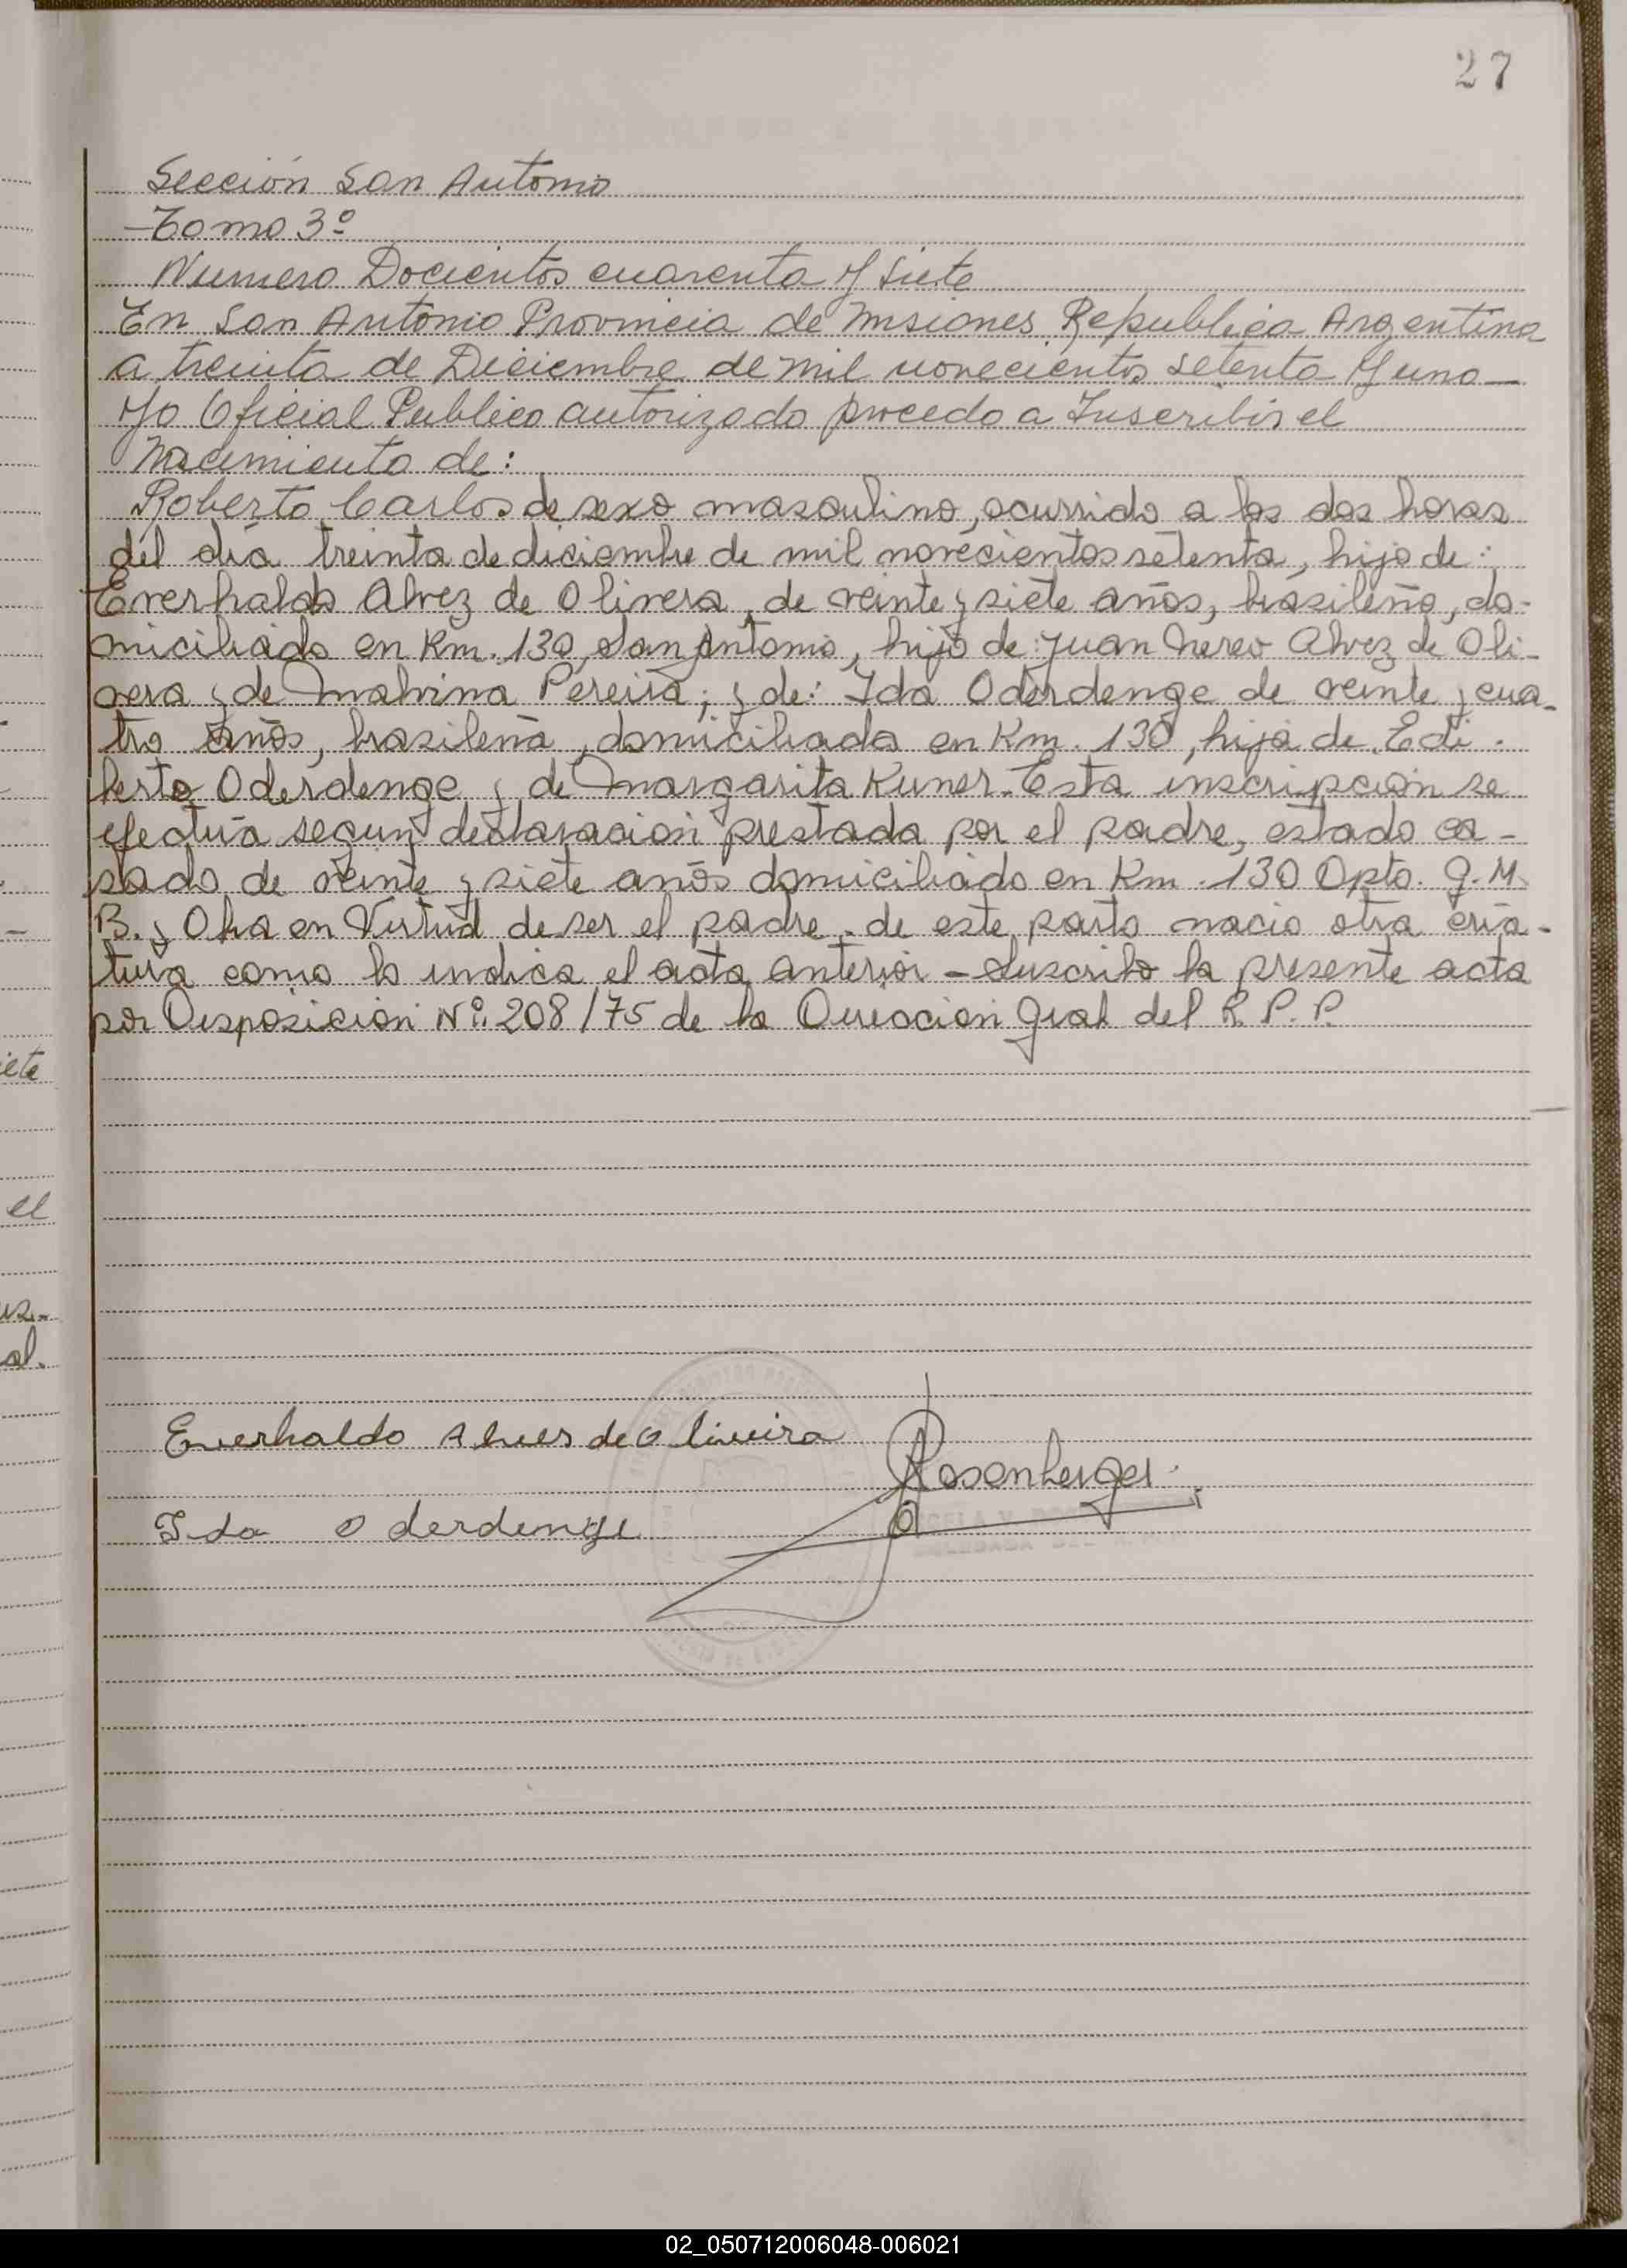 27
Sección San Antonio
Tomo 3º
Numero Docientos cuarenta y Siete
En San Antonio Provincia de Misiones Republica Argentina
a treinta de Diciembre de Mil novecientos setenta y uno—
Yo Oficial Publico autorizado procedo a Inscribir el
Nacimiento de:
Roberto Carlos de sexo masculino, ocurrido a las dos horas
del dia treinta de diciembre de mil novecientos setenta, hijo de:
Everhaldo Alvez de Olivera, de veinte y siete años, brasileño, do-
miciliado en Km. 130, San Antonio, hijo de: Juan Nereo Alvez de Oli-
vera y de Malvina Pereira; y de: Ida Oderdenge de veinte y cua-
tro años, brasileña, domiciliada en Km. 130, hija de Edi-
berto Oderdenge y de Margarita Kuner. Esta inscripción se
efectúa segun declaracion prestada por el padre, estado ca-
sado de veinte y siete años domiciliado en Km. 130 Dpto. G. M.
B. y Oba en Virtud de ser el padre. de este parto nacio otra cria-
tura como lo indica el acta anterior - Suscribo la presente acta
por Disposicion Nº. 208/75 de la Direccion Gral del R. P. P.
iete
el
al.
Everhaldo Alves de Oliveira
Rosenberger
Ida Oderdenge
02_050712006048-006021